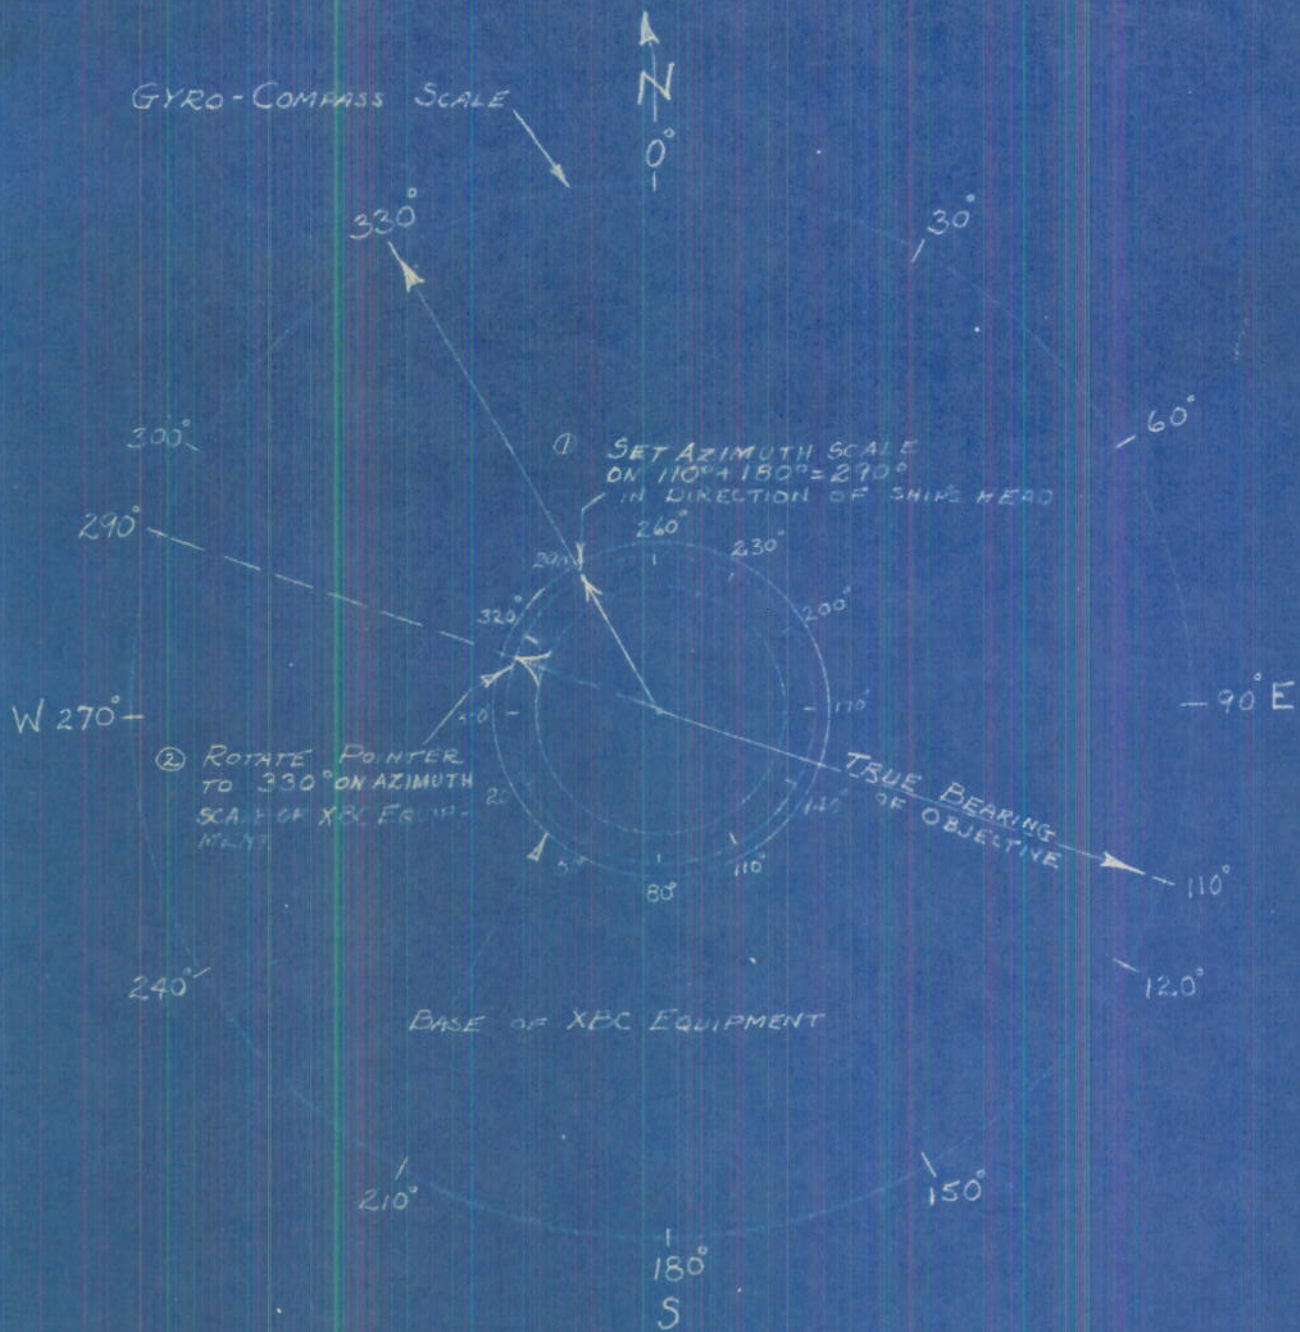 N
GYRO-COMPASS SCALE
0°
330°
30°
300°
60°
① SET AZIMUTH SCALE
ON 110°+180°=290°
IN DIRECTION OF SHIPS HEAD
290°
260°
230°
290°
320°
200°
W 270°
170°
90° E
② ROTATE POINTER
TO 330° ON AZIMUTH
SCALE OF XBC EQUIP-
MENT
TRUE BEARING
OF OBJECTIVE
20°
140°
50°
110°
80°
110°
240°
120°
BASE OF XBC EQUIPMENT
210°
150°
180°
S